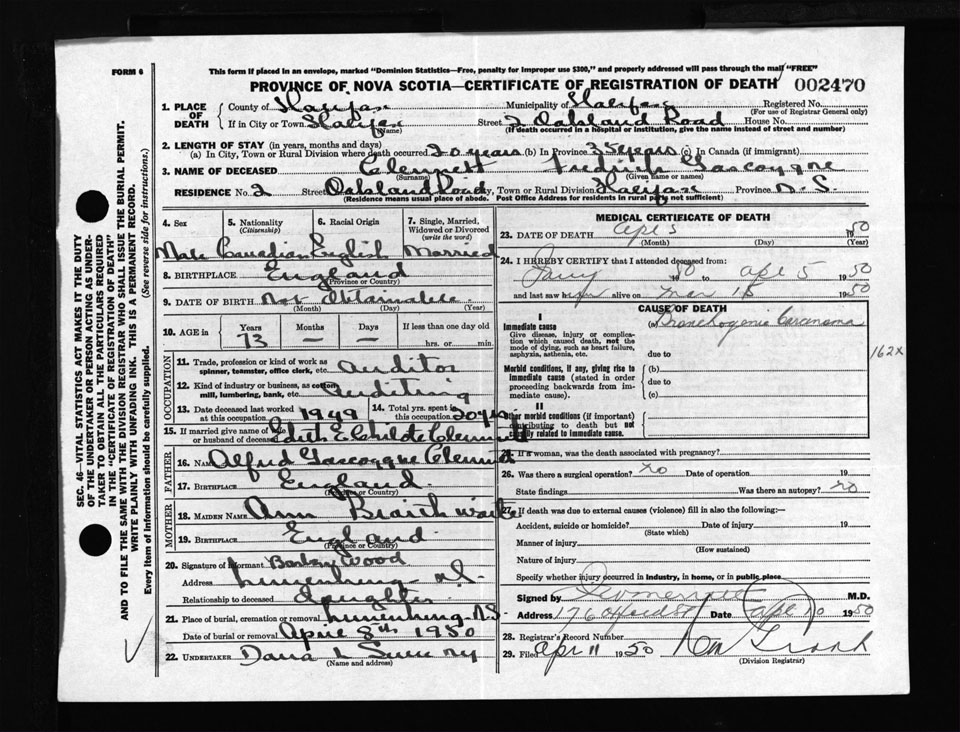 FORM 6
This form if placed in an envelope, marked "Dominion Statistics—Free, penalty for improper use $300," and properly addressed will pass through the mail "FREE"
PROVINCE OF NOVA SCOTIA—CERTIFICATE OF REGISTRATION OF DEATH 002470
1. PLACE OF DEATH County of Halifax Municipality of Halifax Registered No.
(For use of Registrar General only)
If in City or Town Halifax (Name) Street 2 Oakland Road House No.
(If death occurred in a hospital or institution, give the name instead of street and number)
2. LENGTH OF STAY (in years, months and days)
(a) In City, Town or Rural Division where death occurred 20 years (b) In Province 35 years (c) In Canada (if immigrant)
3. NAME OF DECEASED Clennett Gascoygne
(Surname) (Given name or names)
RESIDENCE No. 2 Street Oakland Road City, Town or Rural Division Halifax Province N.S.
(Residence means usual place of abode. Post Office Address for residents in rural parts not sufficient)
4. Sex
5. Nationality (Citizenship)
6. Racial Origin
7. Single, Married, Widowed or Divorced (write the word)
Male Canadian English Married
8. BIRTHPLACE England
(Province or Country)
9. DATE OF BIRTH Not Obtainable
(Month) (Day) (Year)
10. AGE in Years Months Days If less than one day old
73 — — hrs. or min.
OCCUPATION
11. Trade, profession or kind of work as spinner, teamster, office clerk, etc. Auditor
12. Kind of industry or business, as cotton mill, lumbering, bank, etc. Auditing
13. Date deceased last worked at this occupation 1949 14. Total yrs. spent in this occupation 20 yrs
15. If married give name of wife or husband of deceased Edith E. Clennett
FATHER
16. NAME Alfred Gascoygne Clennett
17. BIRTHPLACE England
(Province or Country)
MOTHER
18. MAIDEN NAME Ann Braithwaite
19. BIRTHPLACE England
(Province or Country)
20. Signature of informant Wood
Address Lunenburg N.S.
Relationship to deceased Daughter
21. Place of burial, cremation or removal Lunenburg N.S.
Date of burial or removal April 8th 1950
22. UNDERTAKER
(Name and address)
MEDICAL CERTIFICATE OF DEATH
23. DATE OF DEATH Apl 5 1950
(Month) (Day) (Year)
24. I HEREBY CERTIFY that I attended deceased from:
Jany 50 to Apl 5 1950
and last saw him alive on Mar 15 1950
CAUSE OF DEATH
I
Immediate cause
Give disease, injury or complication which caused death, not the mode of dying, such as heart failure, asphyxia, asthenia, etc.
(a) Bronchogenic Carcinoma
due to
162X
Morbid conditions, if any, giving rise to immediate cause (stated in order proceeding backwards from immediate cause).
(b)
due to
(c)
II
Other morbid conditions (if important) contributing to death but not causally related to immediate cause.
25. If a woman, was the death associated with pregnancy?
26. Was there a surgical operation? No Date of operation 19
State findings Was there an autopsy? No
27. If death was due to external causes (violence) fill in also the following:—
Accident, suicide or homicide? Date of injury 19
(State which)
Manner of injury
(How sustained)
Nature of injury
Specify whether injury occurred in industry, in home, or in public place
Signed by M.D.
Address 176 Oxford St Date Apl 10 1950
28. Registrar's Record Number
29. Filed Apr 11 1950
(Division Registrar)
SEC. 46—VITAL STATISTICS ACT MAKES IT THE DUTY
OF THE UNDERTAKER OR PERSON ACTING AS UNDERTAKER TO OBTAIN ALL THE PARTICULARS REQUIRED
IN THE "CERTIFICATE OF REGISTRATION OF DEATH"
AND TO FILE THE SAME WITH THE DIVISION REGISTRAR WHO SHALL ISSUE THE BURIAL PERMIT.
WRITE PLAINLY WITH UNFADING INK. THIS IS A PERMANENT RECORD.
Every item of information should be carefully supplied. (See reverse side for instructions.)